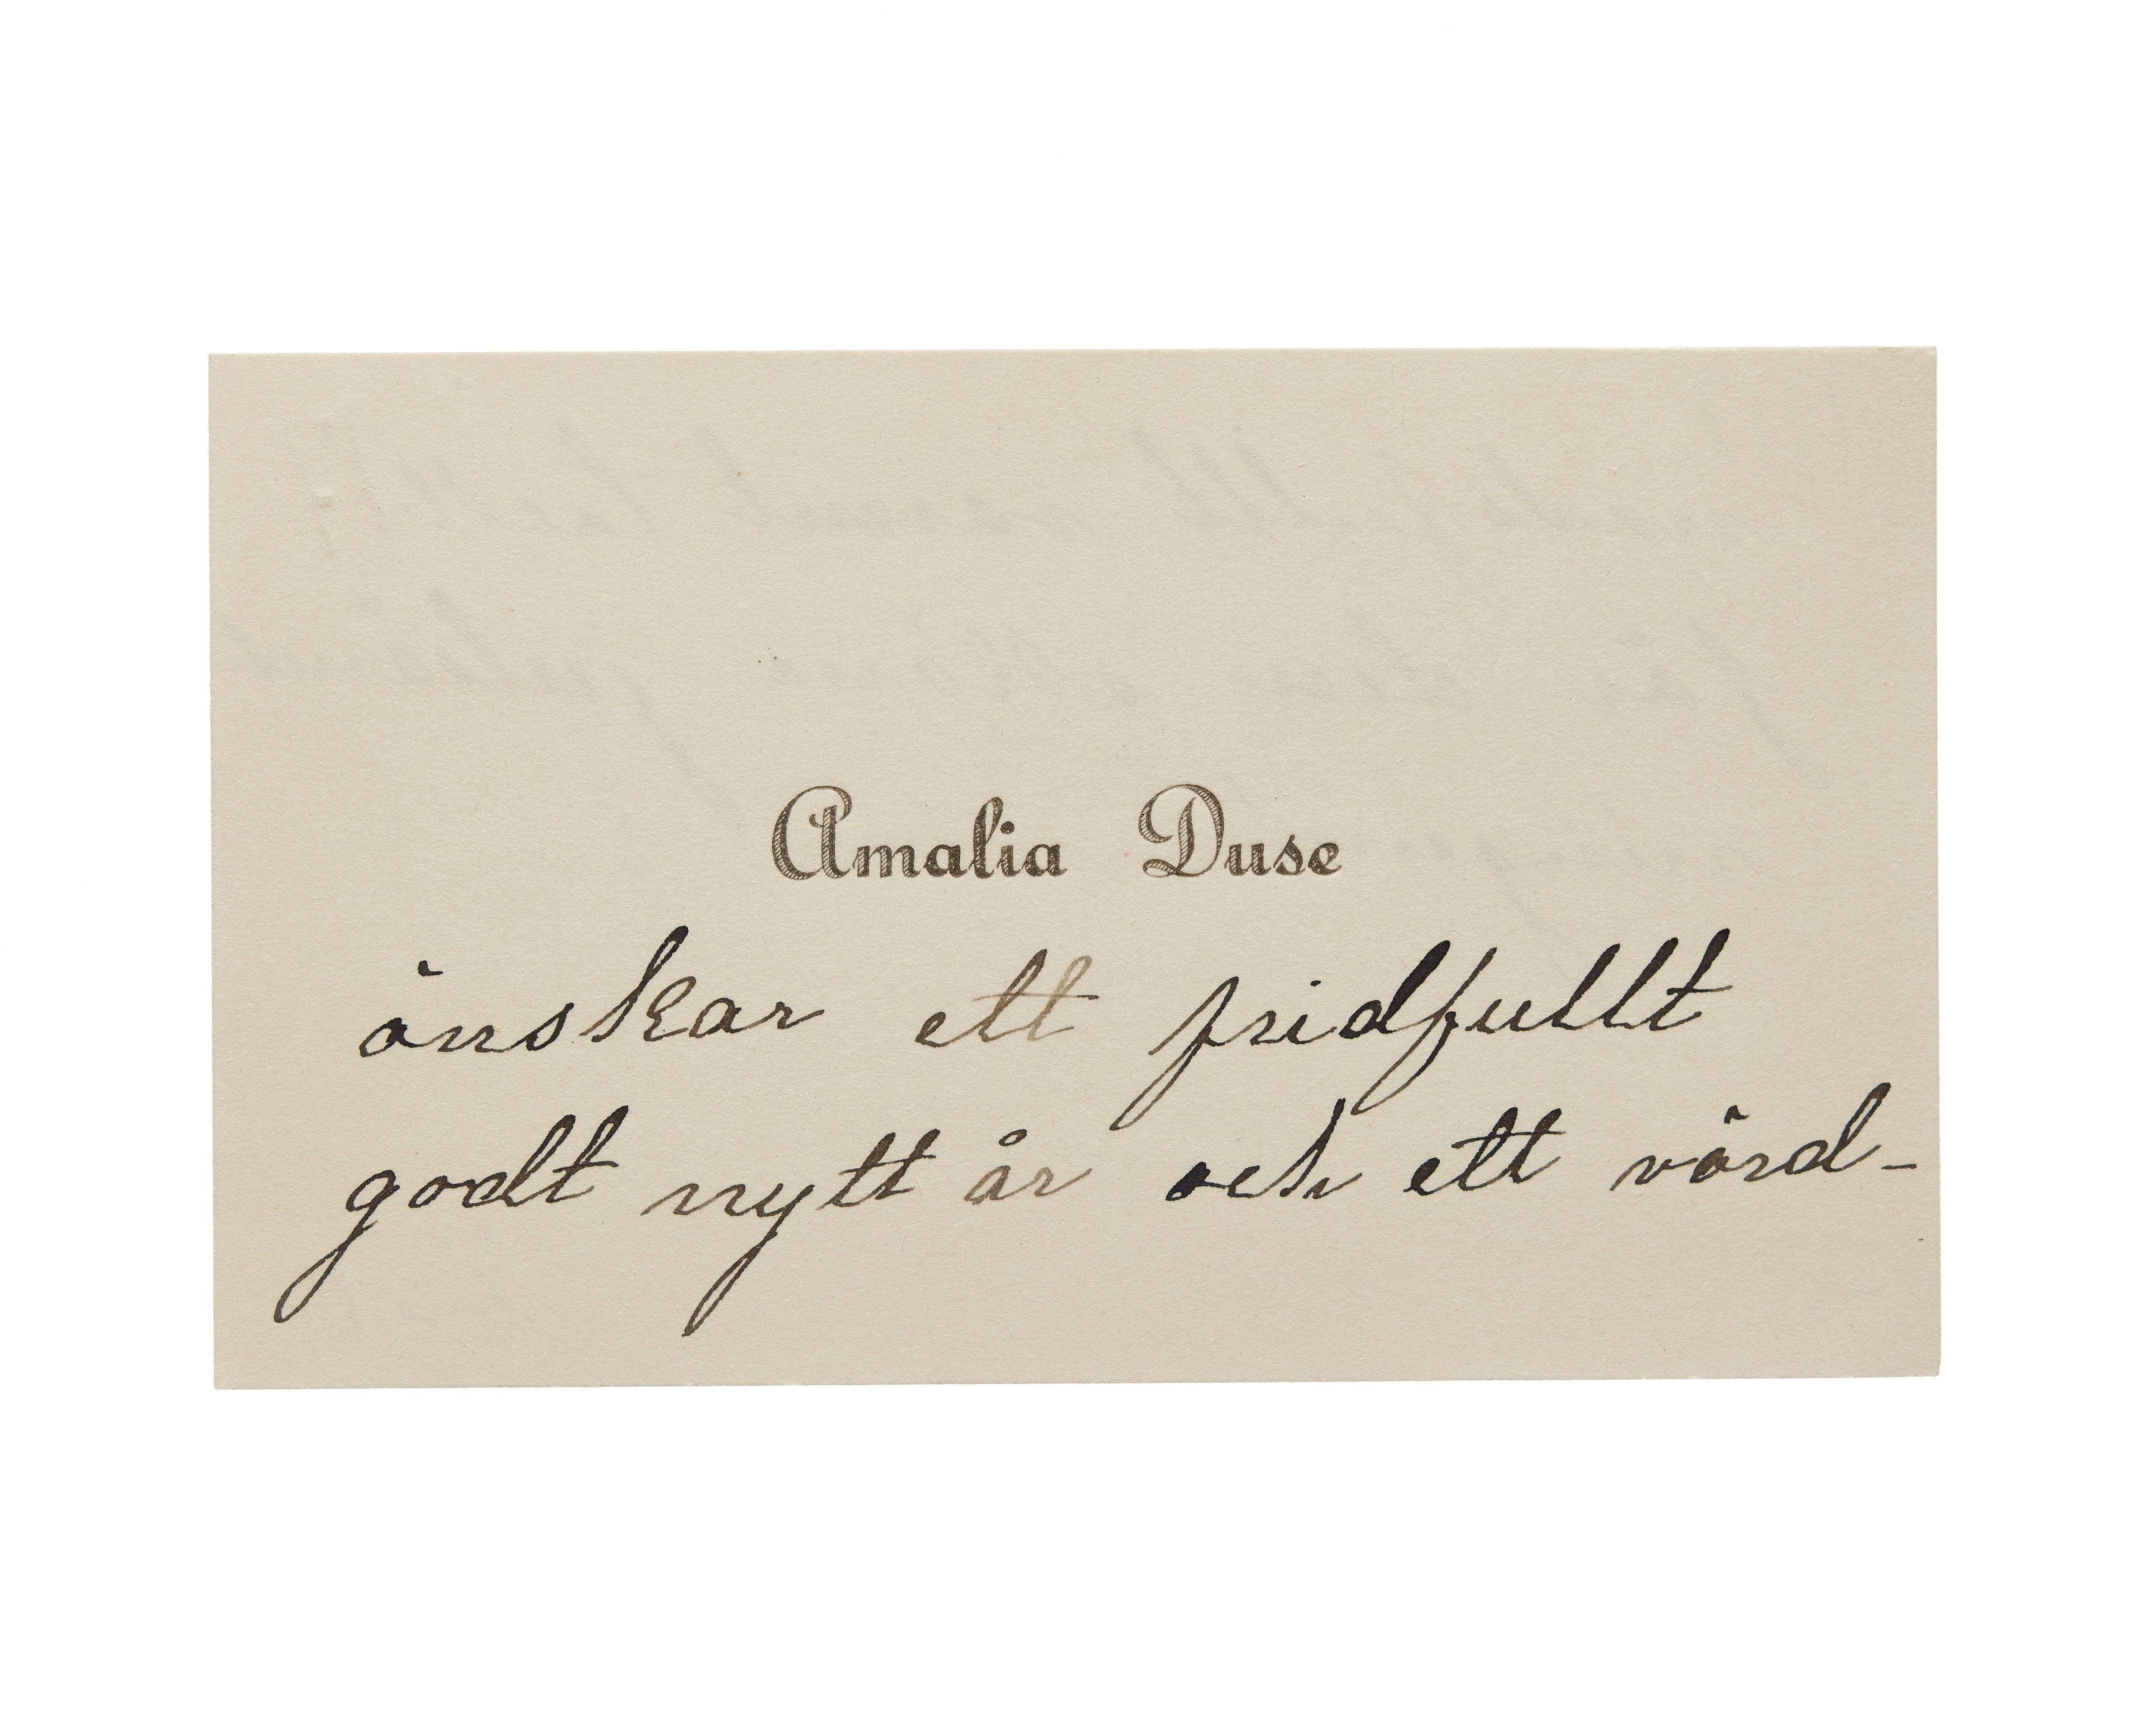 Amalia Duse
önskar ett fridfullt
godt nytt år och ett vörd-